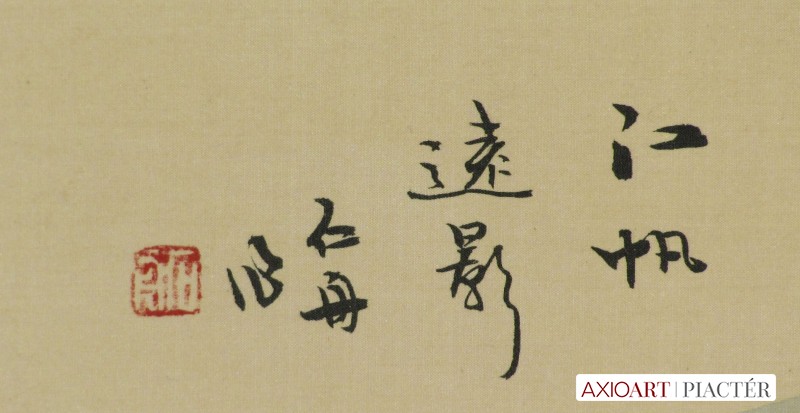 江帆
遠影
仁舟
作
AXIOART PIACTÉR